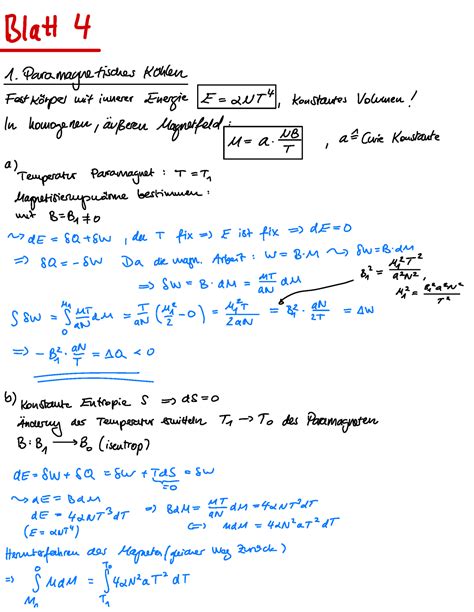 Blatt 4
1. Paramagnetisches Kühlen
Festkörper mit innerer Energie E = αNT⁴, konstantes Volumen!
In homogenen, äußeren Magnetfeld:
M = a · NB/T , a ≙ Curie Konstante
a)
Temperatur Paramagnet: T = T₁
Magnetisierungswärme bestimmen:
mit B = B₁ ≠ 0
⇝ dE = δQ + δW , da T fix ⇒ E ist fix ⇒ dE = 0
⇒ δQ = -δW Da die magn. Arbeit: W = B·M ⇝ δW = B·dM
⇒ δW = B·dM = MT/aN dM
B₁² = M₁²T²/a²N² ,
M₁² = B₁²a²N²/T²
∫δW = ∫₀^M₁ MT/aN dM = T/aN (M₁²/2 - 0) = M₁²T/2aN = B₁² · aN/2T = ΔW
⇒ -B₁² · aN/T = ΔQ < 0
b) Konstante Entropie S ⇒ dS = 0
Änderung der Temperatur ermitteln T₁ → T₀ des Paramagneten
B: B₁ → B₀ (isentrop)
dE = δW + δQ = δW + TdS = δW
=0
⇝ dE = BdM
dE = 4αNT³dT ⇒ BdM = MT/aN dM = 4αNT³dT
(E = αNT⁴) ⇔ MdM = 4αN²aT²dT
Herunterfahren des Magneten (gleicher Weg zurück)
⇒ ∫_M₁^0 MdM = ∫_T₁^T₀ 4αN²aT² dT